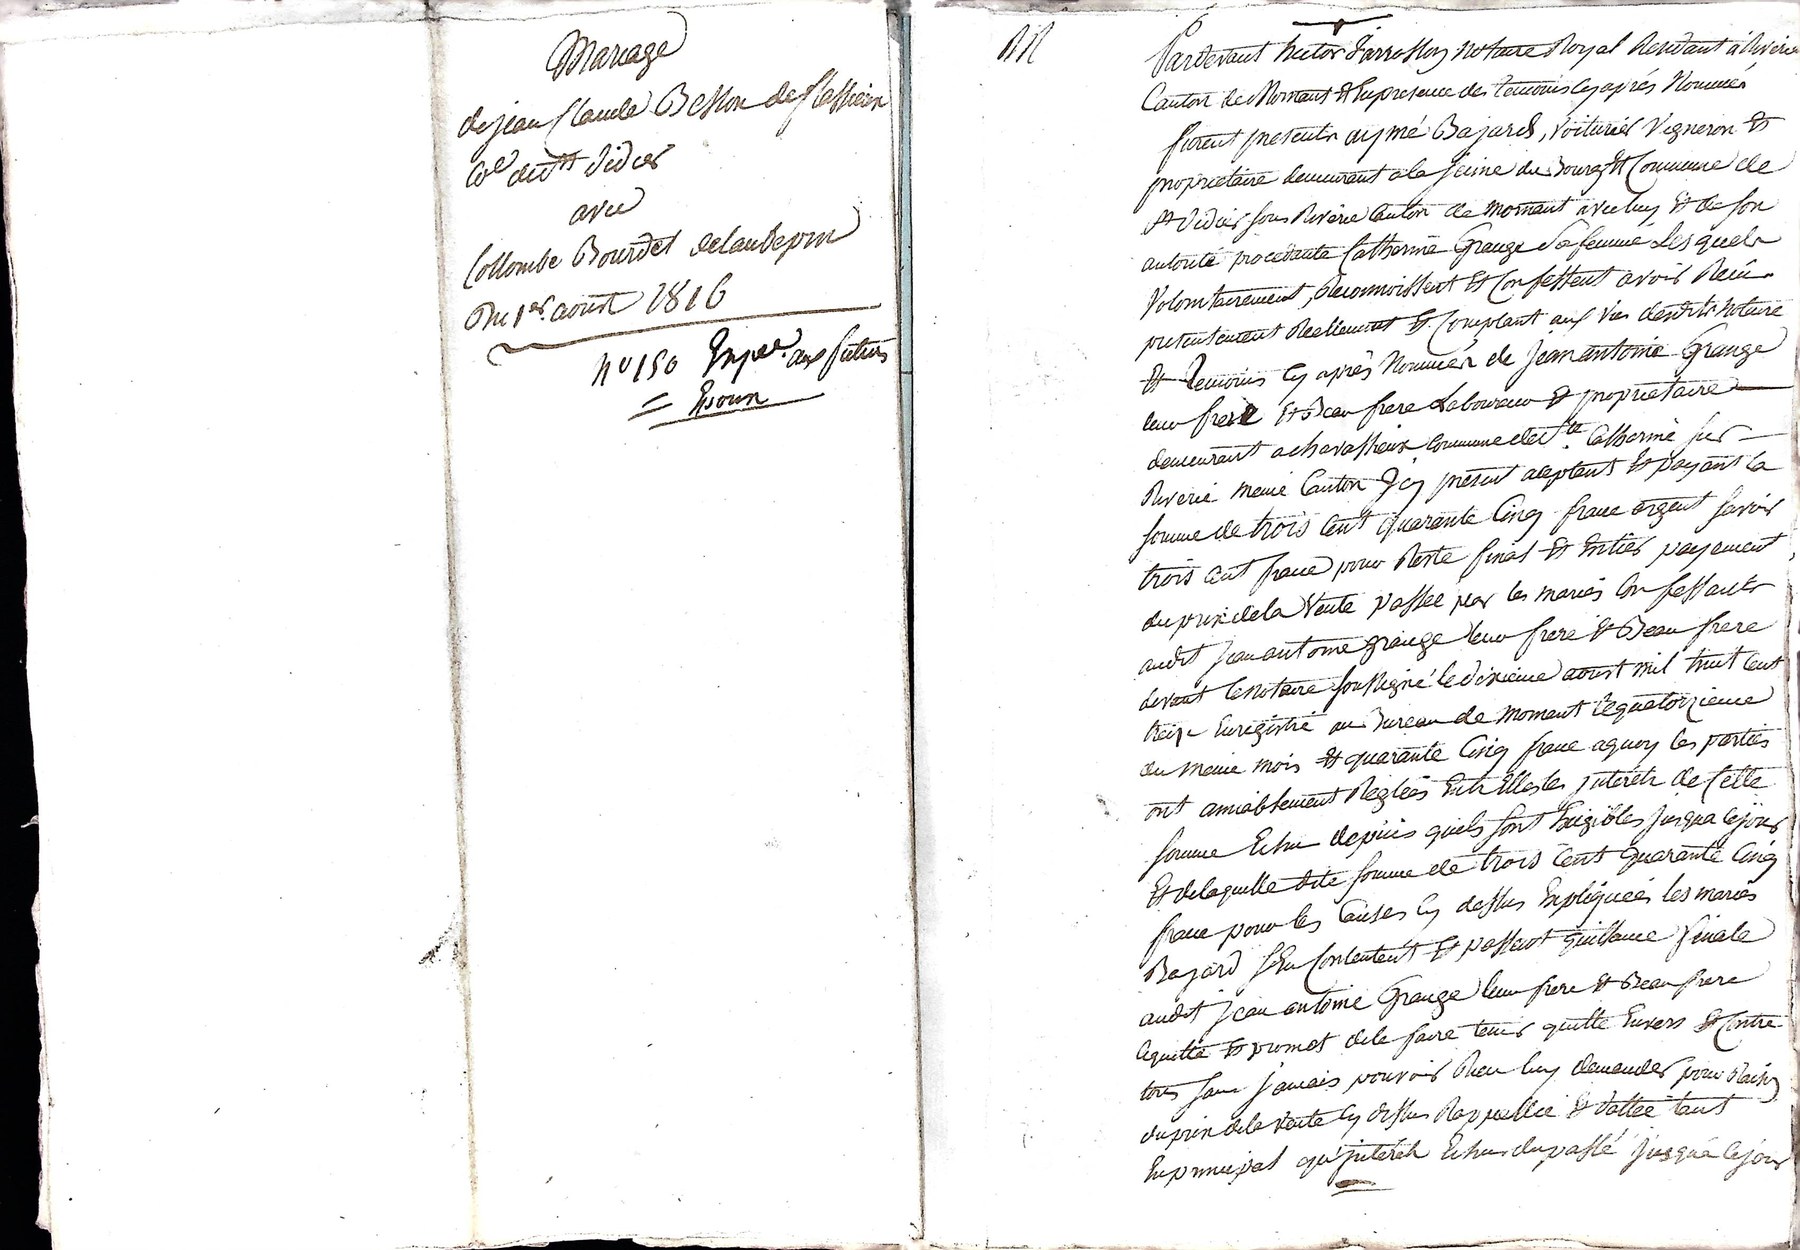 Mariage
de jean Claude Besson de flassieux
Cne de st Didier
avec
Collombe Bourdet delaubepin
Du 1er. aoust 1816
No 150 Exped. aux futurs
M
Pardevant hector farrossoy Notaire Royal Residant a Riverie
Canton de Mornant Et En presence des temoins cy après Nommés
furent presents aymé Bajard, voiturier Vigneron Et
propriétaire demeurant a la du Bourg Et Commune de
st Didier sous Riverie Canton de mornant avec luy Et de son
autorité procedante Catherine Grange Sa femme Les quels
Volontairement, Reconnoissent Et Confessent avoir Recu
presentement Reellement Et Comptant aux vues desdits Notaire
Et temoins cy après Nommés de jean antoine Grange
leur frere Et Beau frere Laboureur Et proprietaire
demeurant a chavassieux Commune de ste. Catherine sur
Riverie meme Canton Icy présent aceptant Et payant la
somme de trois Cent quarante Cinq franc argent savoir
trois Cent franc pour Reste final Et Entier payement
du prix de la Vente passée par les mariés Confessants
audit jean antoine grange leur frere Et Beau frere
devant le Notaire soussigné le dixieme aoust mil huit Cent
treize Enregistré au Bureau de Mornant le quatorzieme
du meme mois Et quarante Cinq franc a quoy les parties
ont amiablement Réglées Entr Elles les jnterets de Cette
somme Echu depuis quels sont Exigibles jusqua Ce jour
Et de laquelle dite somme de trois Cent quarante Cinq
franc pour les Causes cy dessus Expliquées les mariés
Bajard s'En Contentent Et passent quittance finale
audit jean antoine Grange leur frere Et Beau frere
lequitte Et promet de le faire tenir quitte Envers Et Contre
tous sans jamais pouvoir Rien luy demander pour Raison
du prix de la Vente cy dessus Rappellée Et dattée tant
En principal qu'jnterets Echus du passé jusqua Ce jour